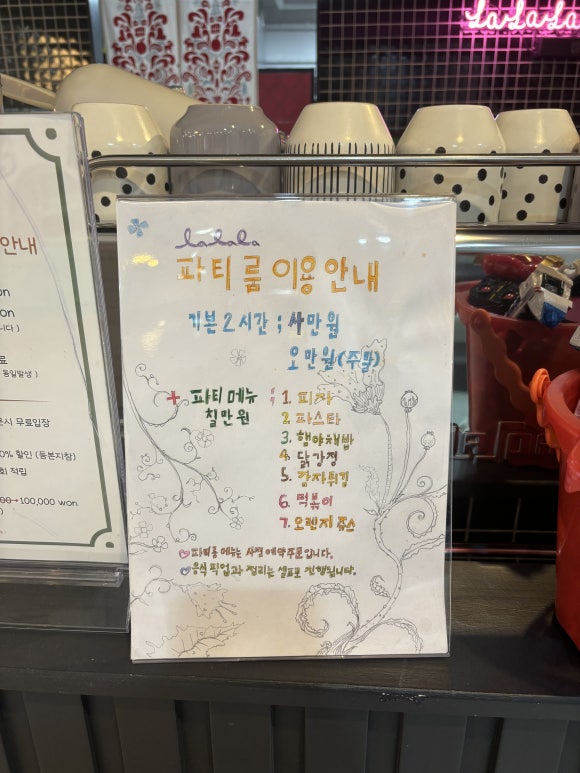 LaLaLa
안내
on
on
니다 )
료
동일발생 )
시 무료입장
0% 할인 (등본지참)
회 적립
→ 100,000 won
lalala
파티룸 이용안내
기본 2시간 ; 사만원
오만원(주말)
+ 파티 메뉴
칠만원
1. 피자
2. 파스타
3. 햄야채밥
4. 닭강정
5. 감자튀김
6. 떡볶이
7. 오렌지 쥬스
파티룸 메뉴는 사전 예약 주문입니다.
음식 픽업과 정리는 셀프로 진행됩니다.